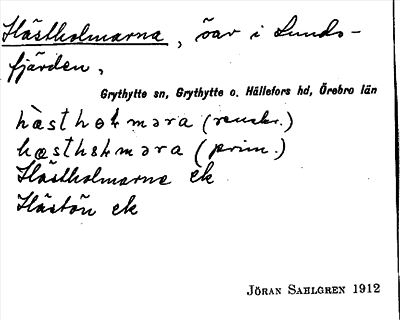 Hästholmarna, öar i Sunds-
fjärden,
Grythytte sn, Grythytte o. Hällefors hd, Örebro län
(renskr.)
(prim.)
Hästholmarne ek
Hästön ek
JÖRAN SAHLGREN 1912